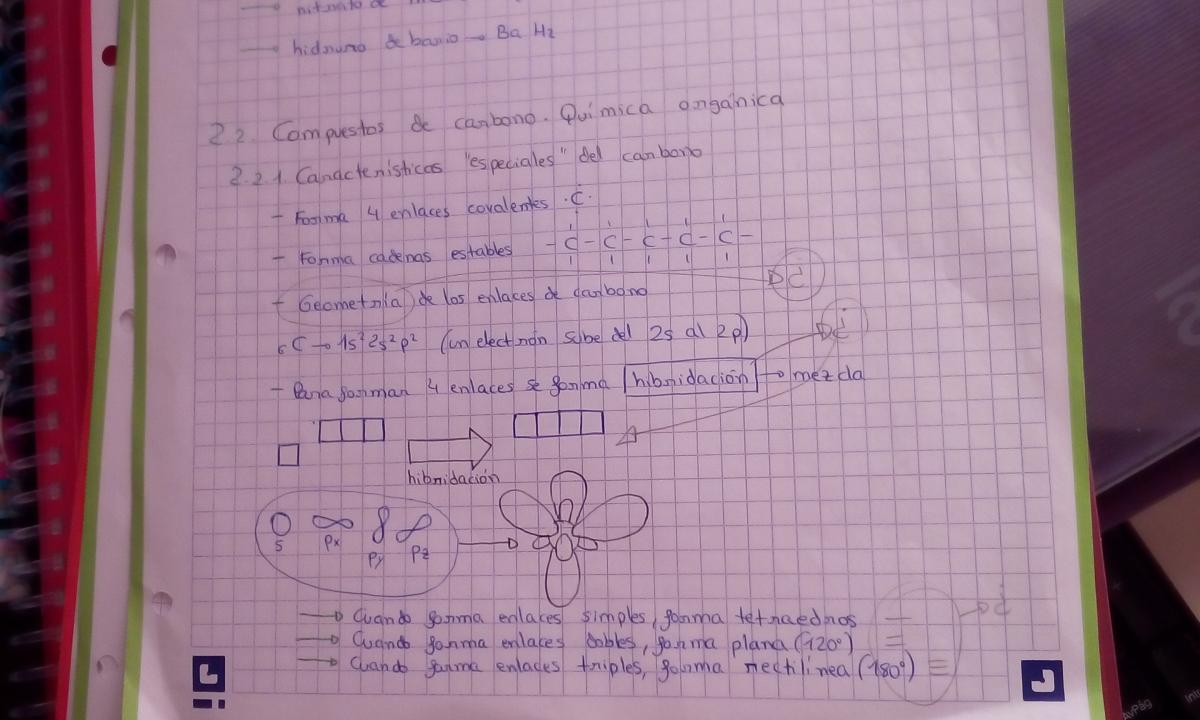 → nitrato de
→ hidruro de bario → BaH2
2.2. Compuestos de carbono. Química orgánica
2.2.1. Características "especiales" del carbono
- Forma 4 enlaces covalentes ·C·
- Forma cadenas estables -C-C-C-C-C-
- Geometría de los enlaces de carbono
¿
6C → 1s²2s²p² (un electrón sube del 2s al 2p)
¿
- Para formar 4 enlaces se forma hibridación → mezcla
hibridación
s px py pz
→ Cuando forma enlaces simples, forma tetraedros —
¿
→ Cuando forma enlaces dobles, forma plana (120º) =
→ Cuando forma enlaces triples, forma rectilínea (180º) ≡
AvPág